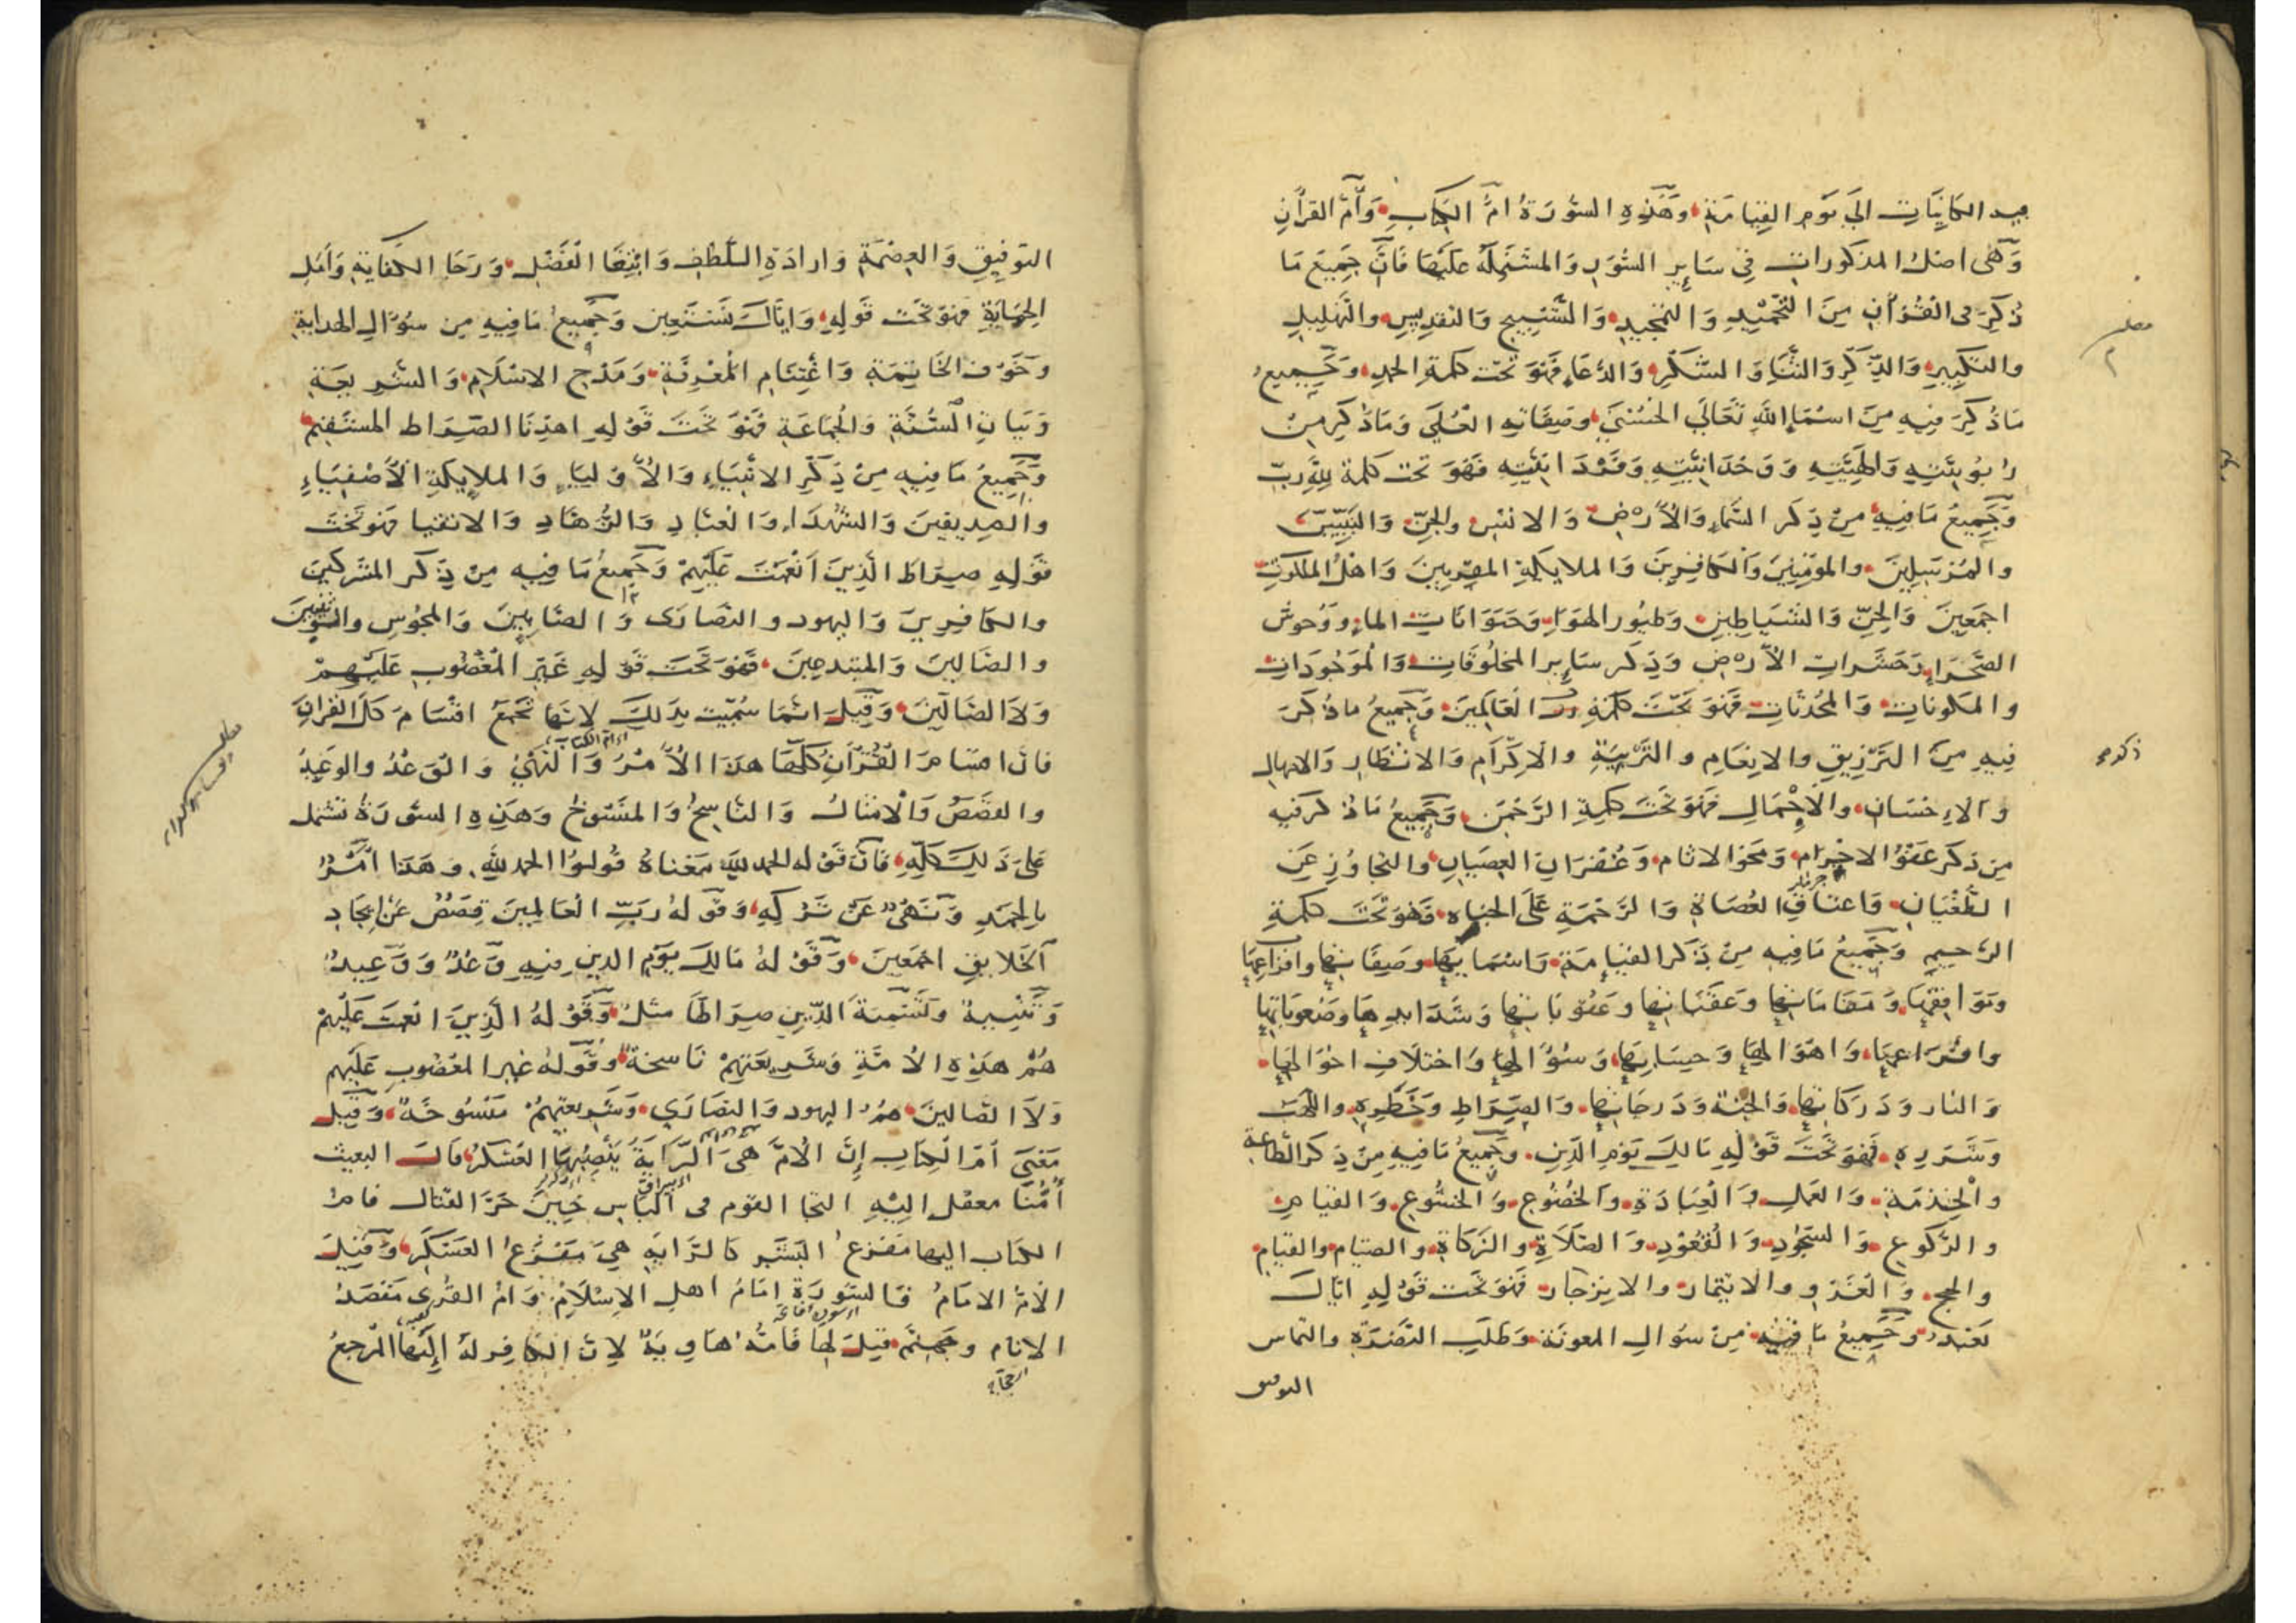 فيه الكاينات الى يوم القيامة وهذه السورة ام الكتاب وام القرآن
وهى اصل المذكورات في ساير السور والمشتملة عليها فان جميع ما
ذكر فى القرآن من التحميد والتمجيد والتسبيح والتقديس والتهليل
والتكبير والذكر والثنا والشكر والدعا فهو تحت كلمة الحمد وجميع
ماذكر فيه من اسما الله تعالى الحسنى وصفاته العلى وما ذكر من
ربوبيته والهيته ووحدانيته وفردانيته فهو تحت كلمة لله رب
وجميع ما فيه من ذكر السماء والارض والانس والجن والنبيين
والمرسلين والمؤمنين والكافرين والملايكة المقربين واهل الملكوت
اجمعين والجن والشياطين وطيور الهوا وحيوانات الماء ووحوش
الصحراء وحشرات الارض وذكر ساير المخلوقات والموجودات
والمكونات والمحدثات فهو تحت كلمة رب العالمين وجميع ما ذكر
فيه من الترزيق والانعام والتربية والاكرام والانتظار والامهال
والاحسان والاجمال فهو تحت كلمة الرحمن وجميع ما ذكر فيه
من ذكر عفو الاجرام ومحو الاثام وغفران العصيان والتجاوز عن
الطغيان واعتاق العصاة والرحمة على الجناه فهو تحت كلمة
الرحيم وجميع ما فيه من ذكر القيامة واسمايها وصفاتها وافزاعها
ومواقفها ومقاماتها وعقباتها وعقوباتها وشدايدها وصعوباتها
واهوالها وحسابها وسؤالها واختلاف احوالها
والنار ودركاتها والجنة ودرجاتها والصراط وخطره
وشرره فهو تحت قوله مالك يوم الدين وجميع ما فيه من ذكر الطاعة
والخدمة والعمل والعبادة والخضوع والخشوع والقيام
والركوع والسجود والقعود والصلاة والزكاة والصيام والقيام
والحج والغزو والايتمار والانزجار فهو تحت قوله اياك
نعبد وجميع ما فيه من سؤال المعونة وطلب النصرة والتماس
التوفيق
التوفيق والعصمة وارادة اللطف وابتغا الفضل ورجا الكفاية وامل
الحماية فهو تحت قوله واياك نستعين وجميع ما فيه من سؤال الهداية
وخوف الخاتمة واغتنام المعرفة ومدح الاسلام والشريعة
وبيان السنة والجماعة فهو تحت قوله اهدنا الصراط المستقيم
وجميع ما فيه من ذكر الانبياء والاوليا والملايكة الاصفياء
والصديقين والشهداء والعباد والزهاد والاتقيا فهو تحت
قوله صراط الذين انعمت عليهم وجميع ما فيه من ذكر المشركين
والكافرين واليهود والنصارى والصابين والمجوس
والضالين والمبتدعين فهو تحت قوله غير المغضوب عليهم
ولا الضالين وقيل انما سميت بذلك لانها تجمع اقسام كل القران
فان اقسام القرآن كلها هذا الامر والنهى والوعد والوعيد
والقصص والامثال والناسخ والمنسوخ وهذه السورة تشتمل
على ذلك كله فان قوله الحمد لله معناه قولوا الحمد لله وهذا امر
بالحمد ونهى عن تركه وقوله رب العالمين قصص عن ايجاد
الخلايق اجمعين وقوله مالك يوم الدين فيه وعد ووعيد
وتسمية الدين صراطا مثل وقوله الذين انعمت عليهم
هم هذه الامة وشريعتهم ناسخة وقوله غير المغضوب عليهم
ولا الضالين هم اليهود والنصارى وشريعتهم منسوخة وقيل
معنى ام الكتاب ان الام هى الراية ينصبها العسكر قال البعيث
أمنا معقل اليه التجا القوم فى الباس حين حر القتال فام
الكتاب اليها مفزع البشر كالراية هى مفزع العسكر وقيل
الام الامام فالسورة امام اهل الاسلام وام القرى مقصد
الانام وجهنم قيل لها فامه هاوية لان الكافر له اليها المرجع